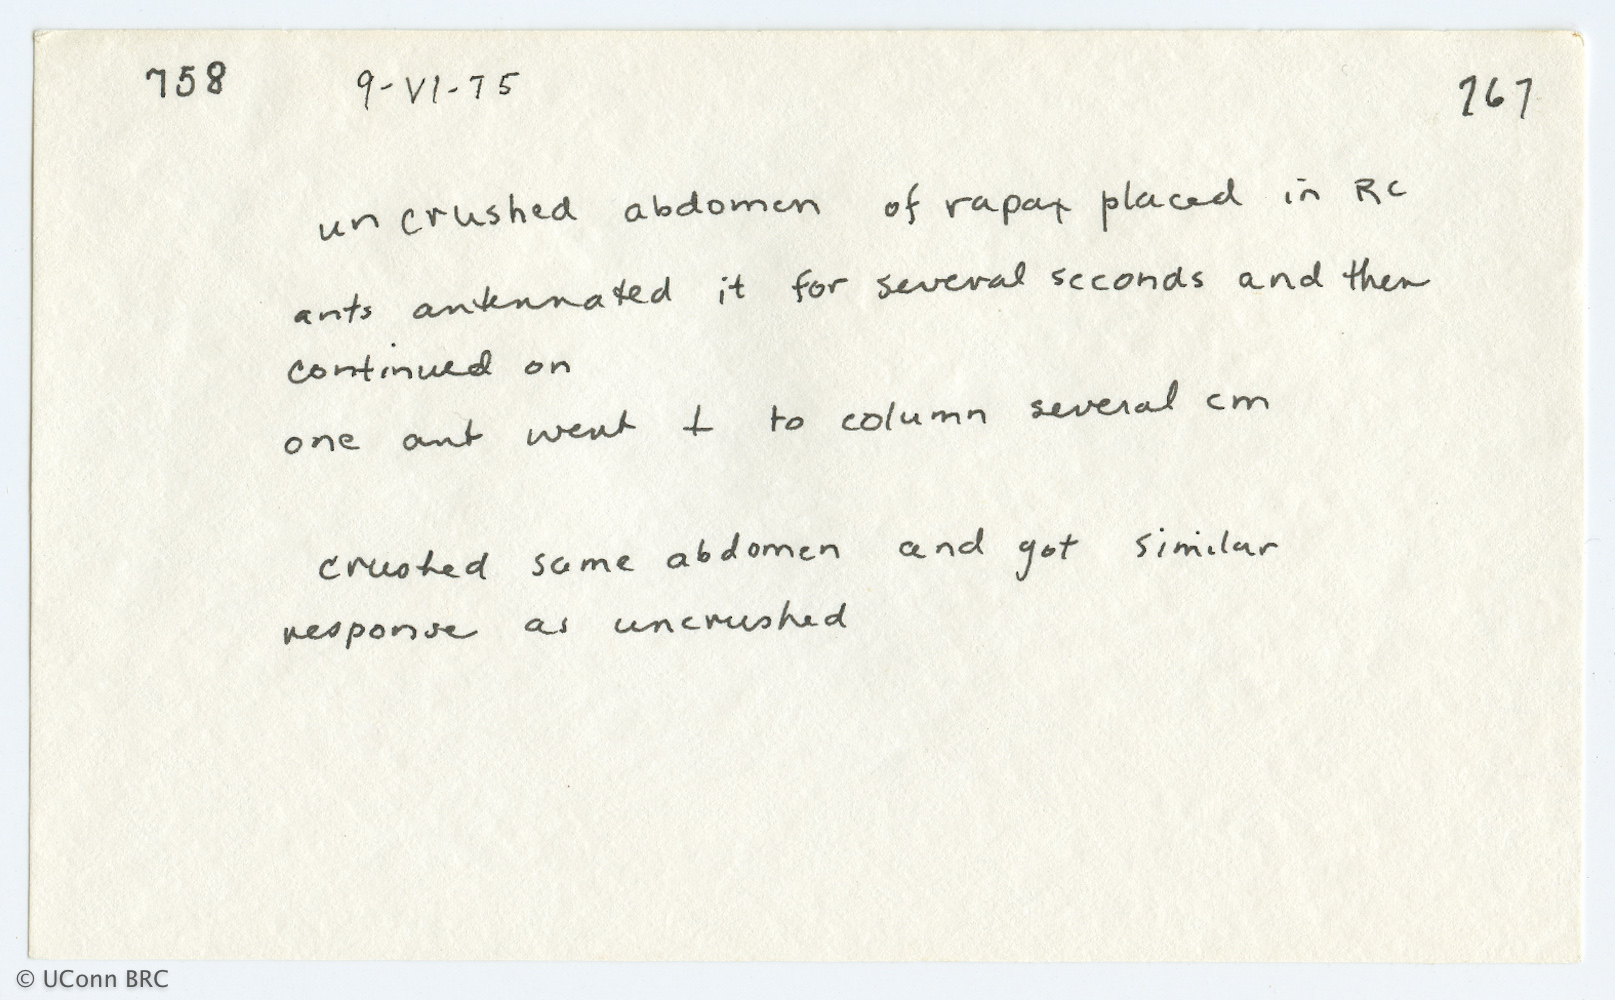 758 9-VI-75 767
uncrushed abdomen of rapax placed in RC
ants antennated it for several seconds and then
continued on
one ant went ⊥ to column several cm
crushed same abdomen and got similar
response as uncrushed
© UConn BRC